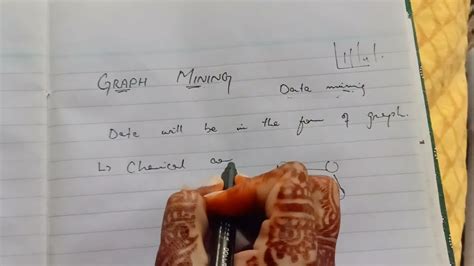 GRAPH MINING
Data mining
Data will be in the form of graph.
↳ Chemical